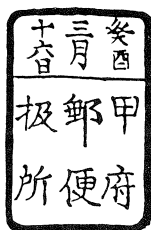 癸酉
三月
十六日
甲府
郵便
扱所